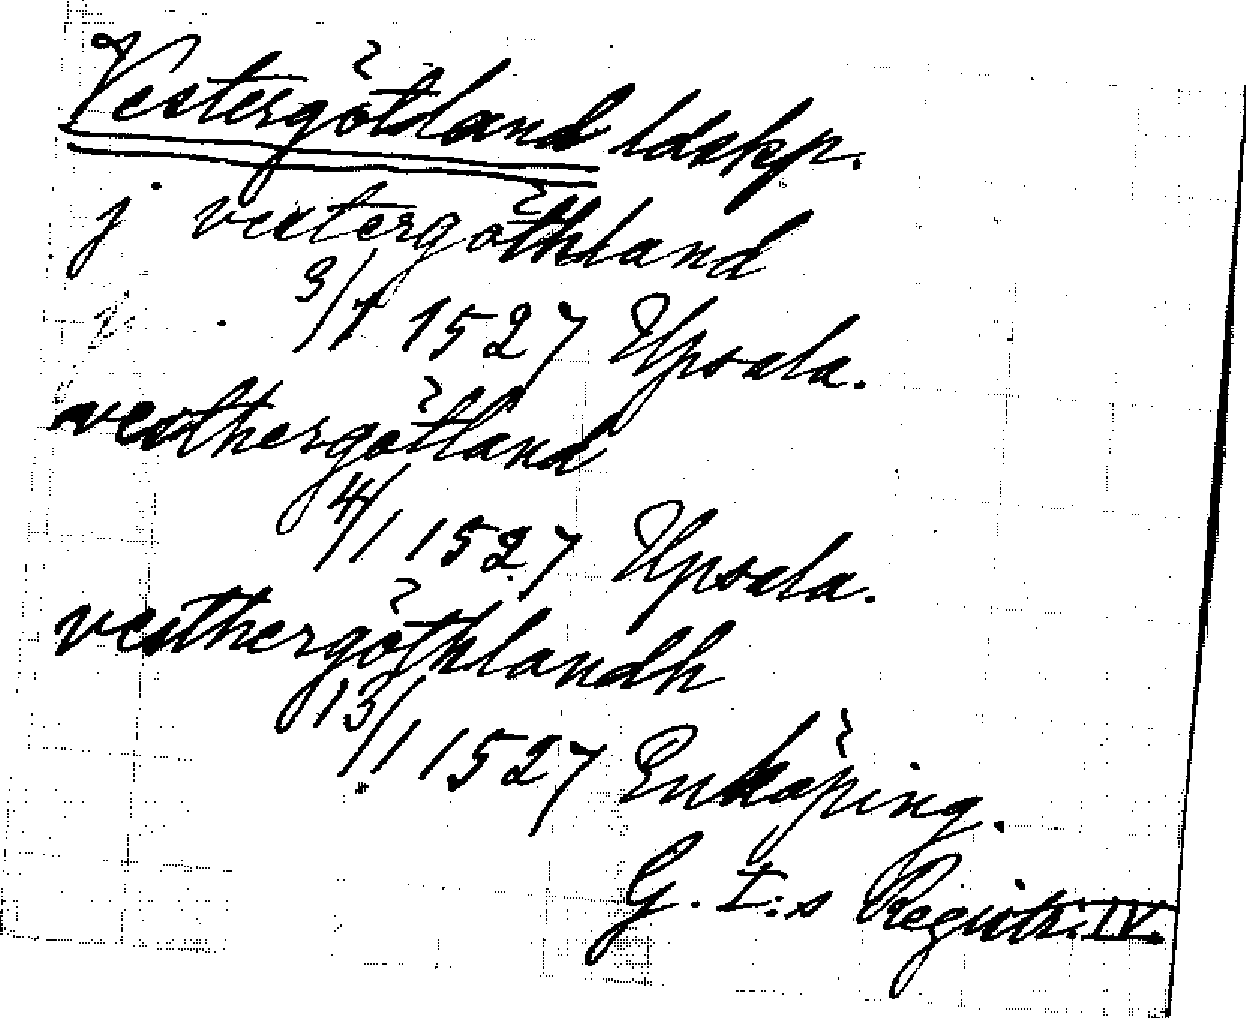 Vestergötland ldskp.
j vestergöthland
3/1 1527 Upsala.
vesthergötland
4/1 1527 Upsala.
vesthergöthlandh
13/1 1527 Enköping.
G. I:s Registr. IV.